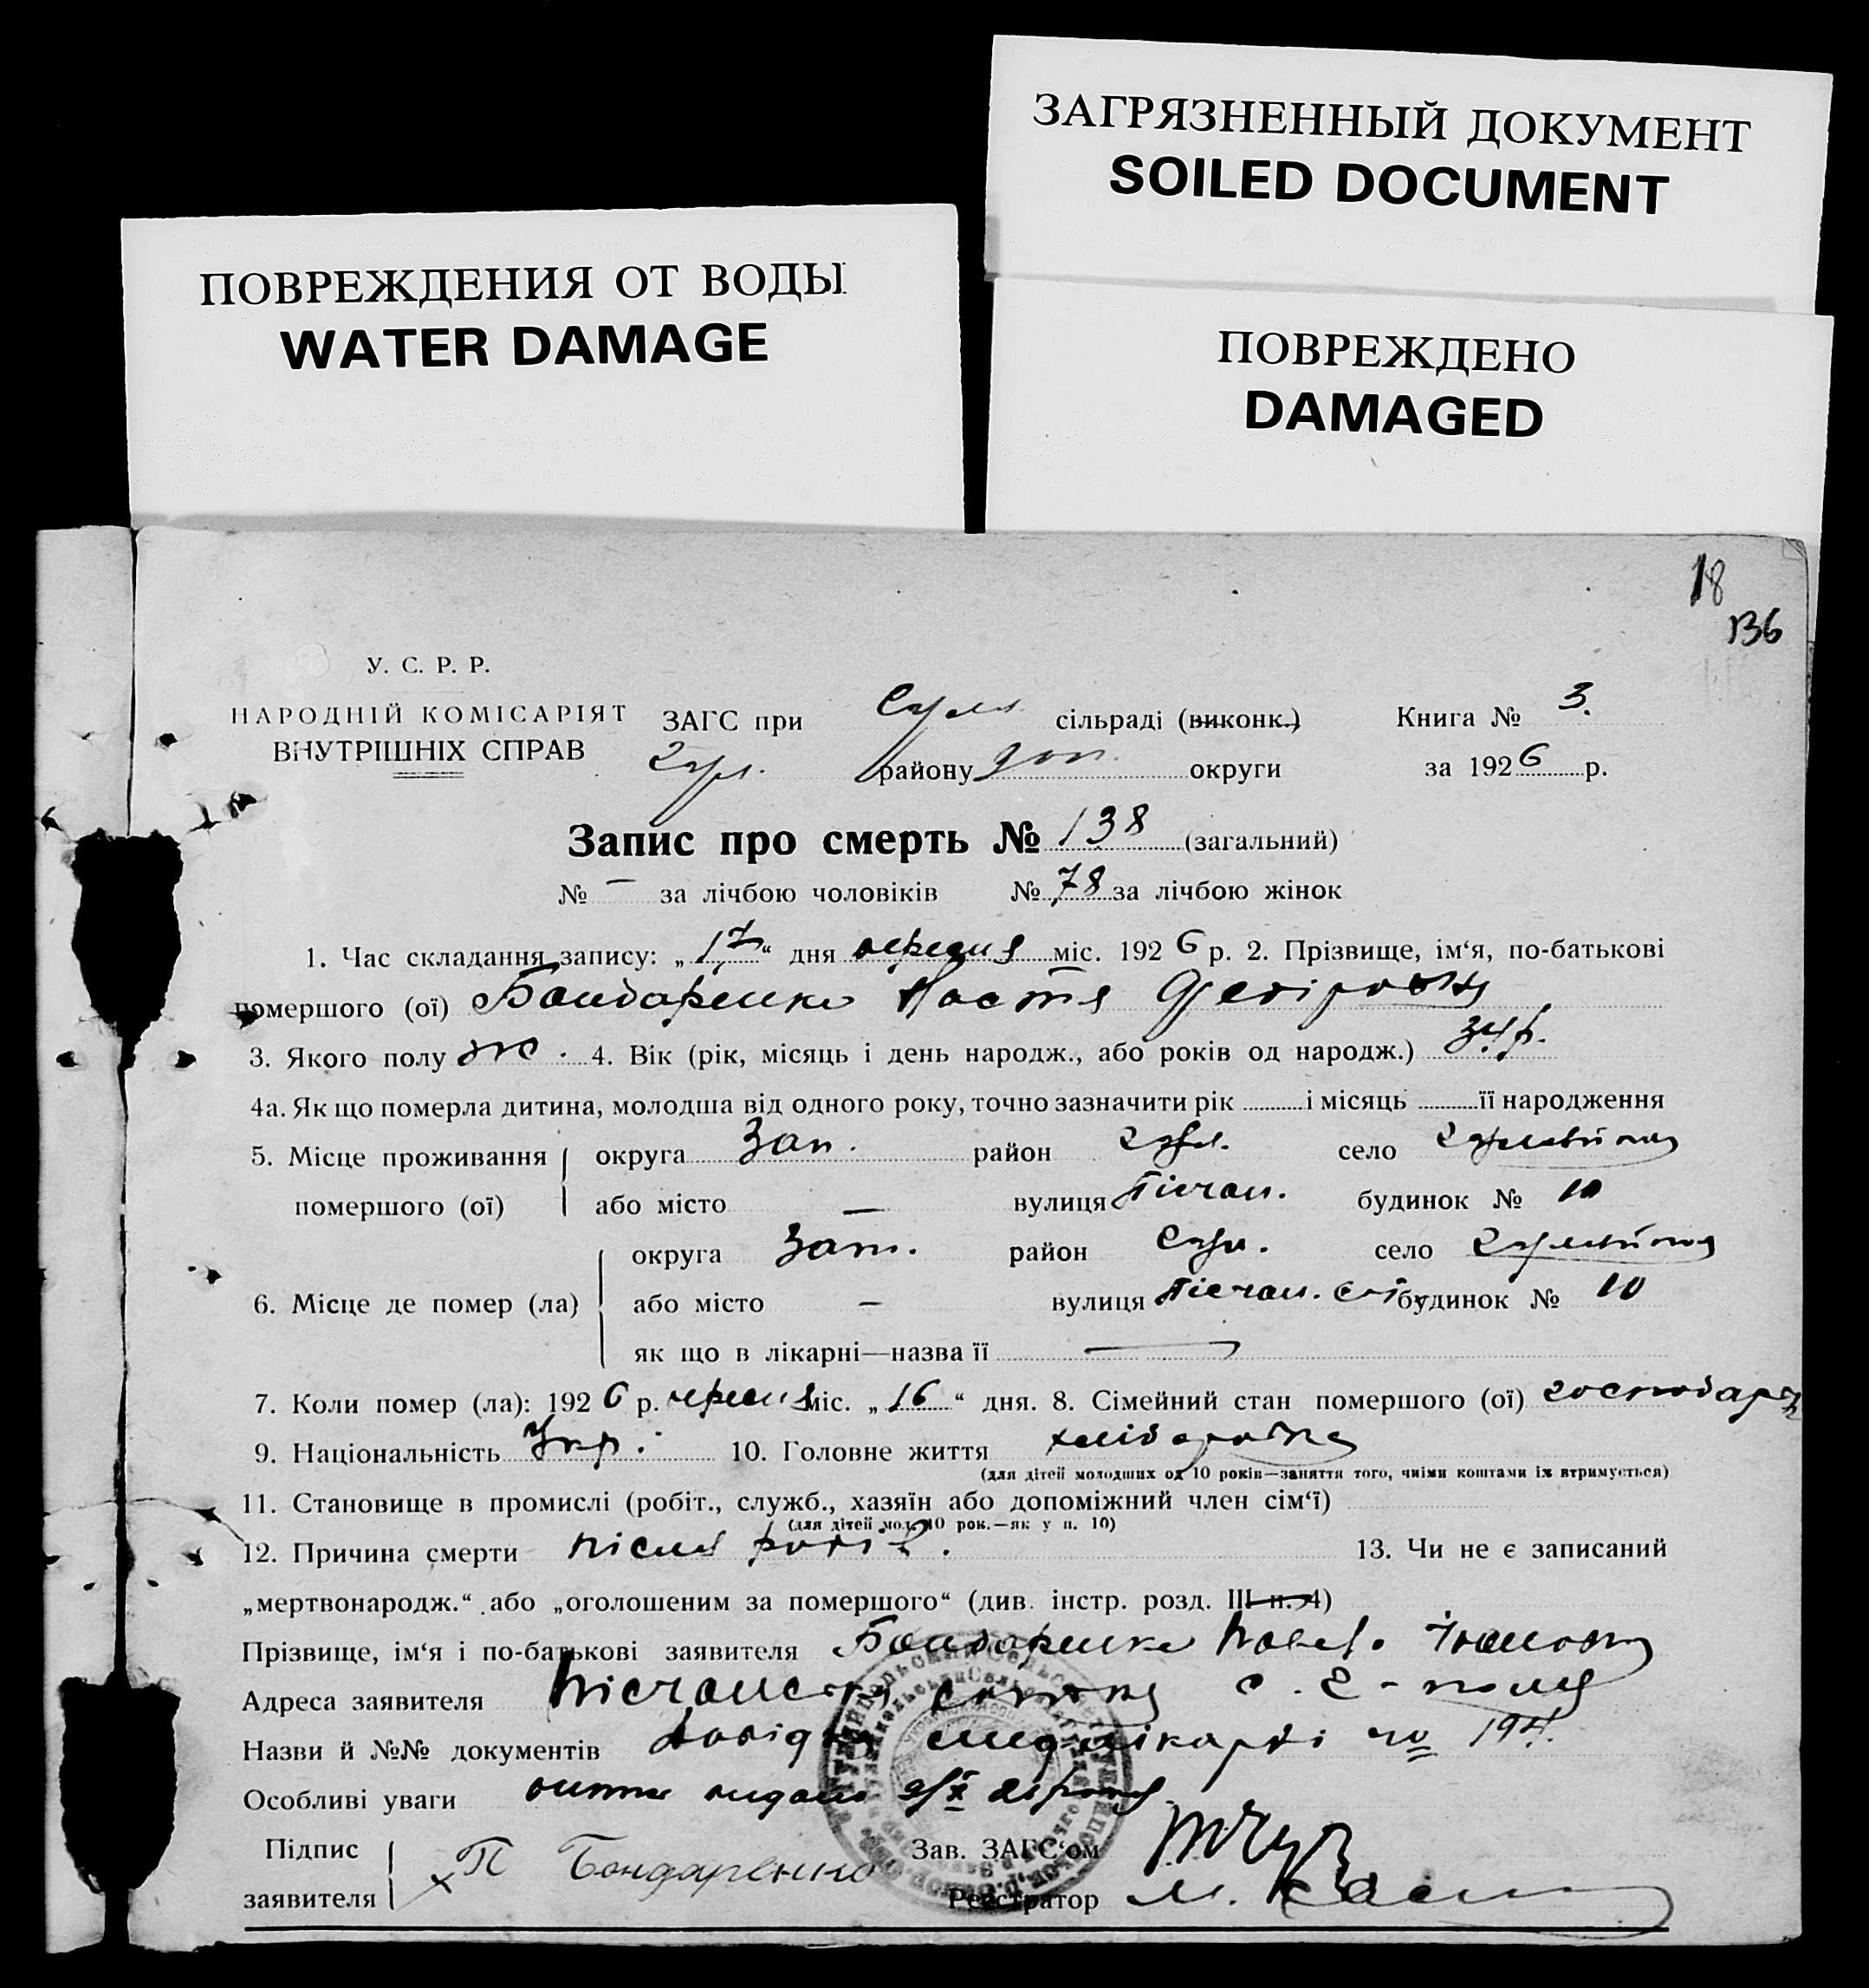 ЗАГРЯЗНЕННЫЙ ДОКУМЕНТ
SOILED DOCUMENT
ПОВРЕЖДЕНИЯ ОТ ВОДЫ
WATER DAMAGE
ПОВРЕЖДЕНО
DAMAGED
18
136
У. С. Р. Р.
НАРОДНІЙ КОМІСАРІЯТ
ВНУТРІШНІХ СПРАВ
ЗАГС при сільраді (виконк.) Книга № 3.
району округи за 1926 р.
Запис про смерть № 138 (загальний)
№ – за лічбою чоловіків № 78 за лічбою жінок
1. Час складання запису: „17“ дня вересня міс. 1926 р. 2. Прізвище, ім‘я, по-батькові
помершого (ої) Бондаренко Настя
3. Якого полу ж. 4. Вік (рік, місяць і день народж., або років од народж.) 34 р.
4а. Як що померла дитина, молодша від одного року, точно зазначити рік і місяць її народження
5. Місце проживання округа Зап. район Гул. село Гуляйполе
помершого (ої) або місто — вулиця Пісчан. будинок № 10
округа Зап. район Гул. село Гуляйполе
6. Місце де помер (ла) або місто – вулиця Пісчан. сот. будинок № 10
як що в лікарні—назва її —
7. Коли помер (ла): 1926 р. вересня міс. „16“ дня. 8. Сімейний стан помершого (ої)
9. Національність Укр. 10. Головне життя хліборобка
(для дітей молодших од 10 років—заняття того, чиїми коштами їх втримується)
11. Становище в промислі (робіт., служб., хазяїн або допоміжний член сім‘ї)
(для дітей мол. 10 рок.—як у п. 10)
12. Причина смерти після родів. 13. Чи не є записаний
„мертвонародж.“ або „оголошеним за помершого“ (див. інстр. розд. III п. 4)
Прізвище, ім‘я і по-батькові заявителя Бондаренко Павло Іванович
Адреса заявителя Пісчанська сотня с. Г-поля
Назви й №№ документів довідка лікарні 194.
Особливі уваги видано
Підпис П Бондаренко Зав. ЗАГС‘ом
заявителя Реєстратор М.